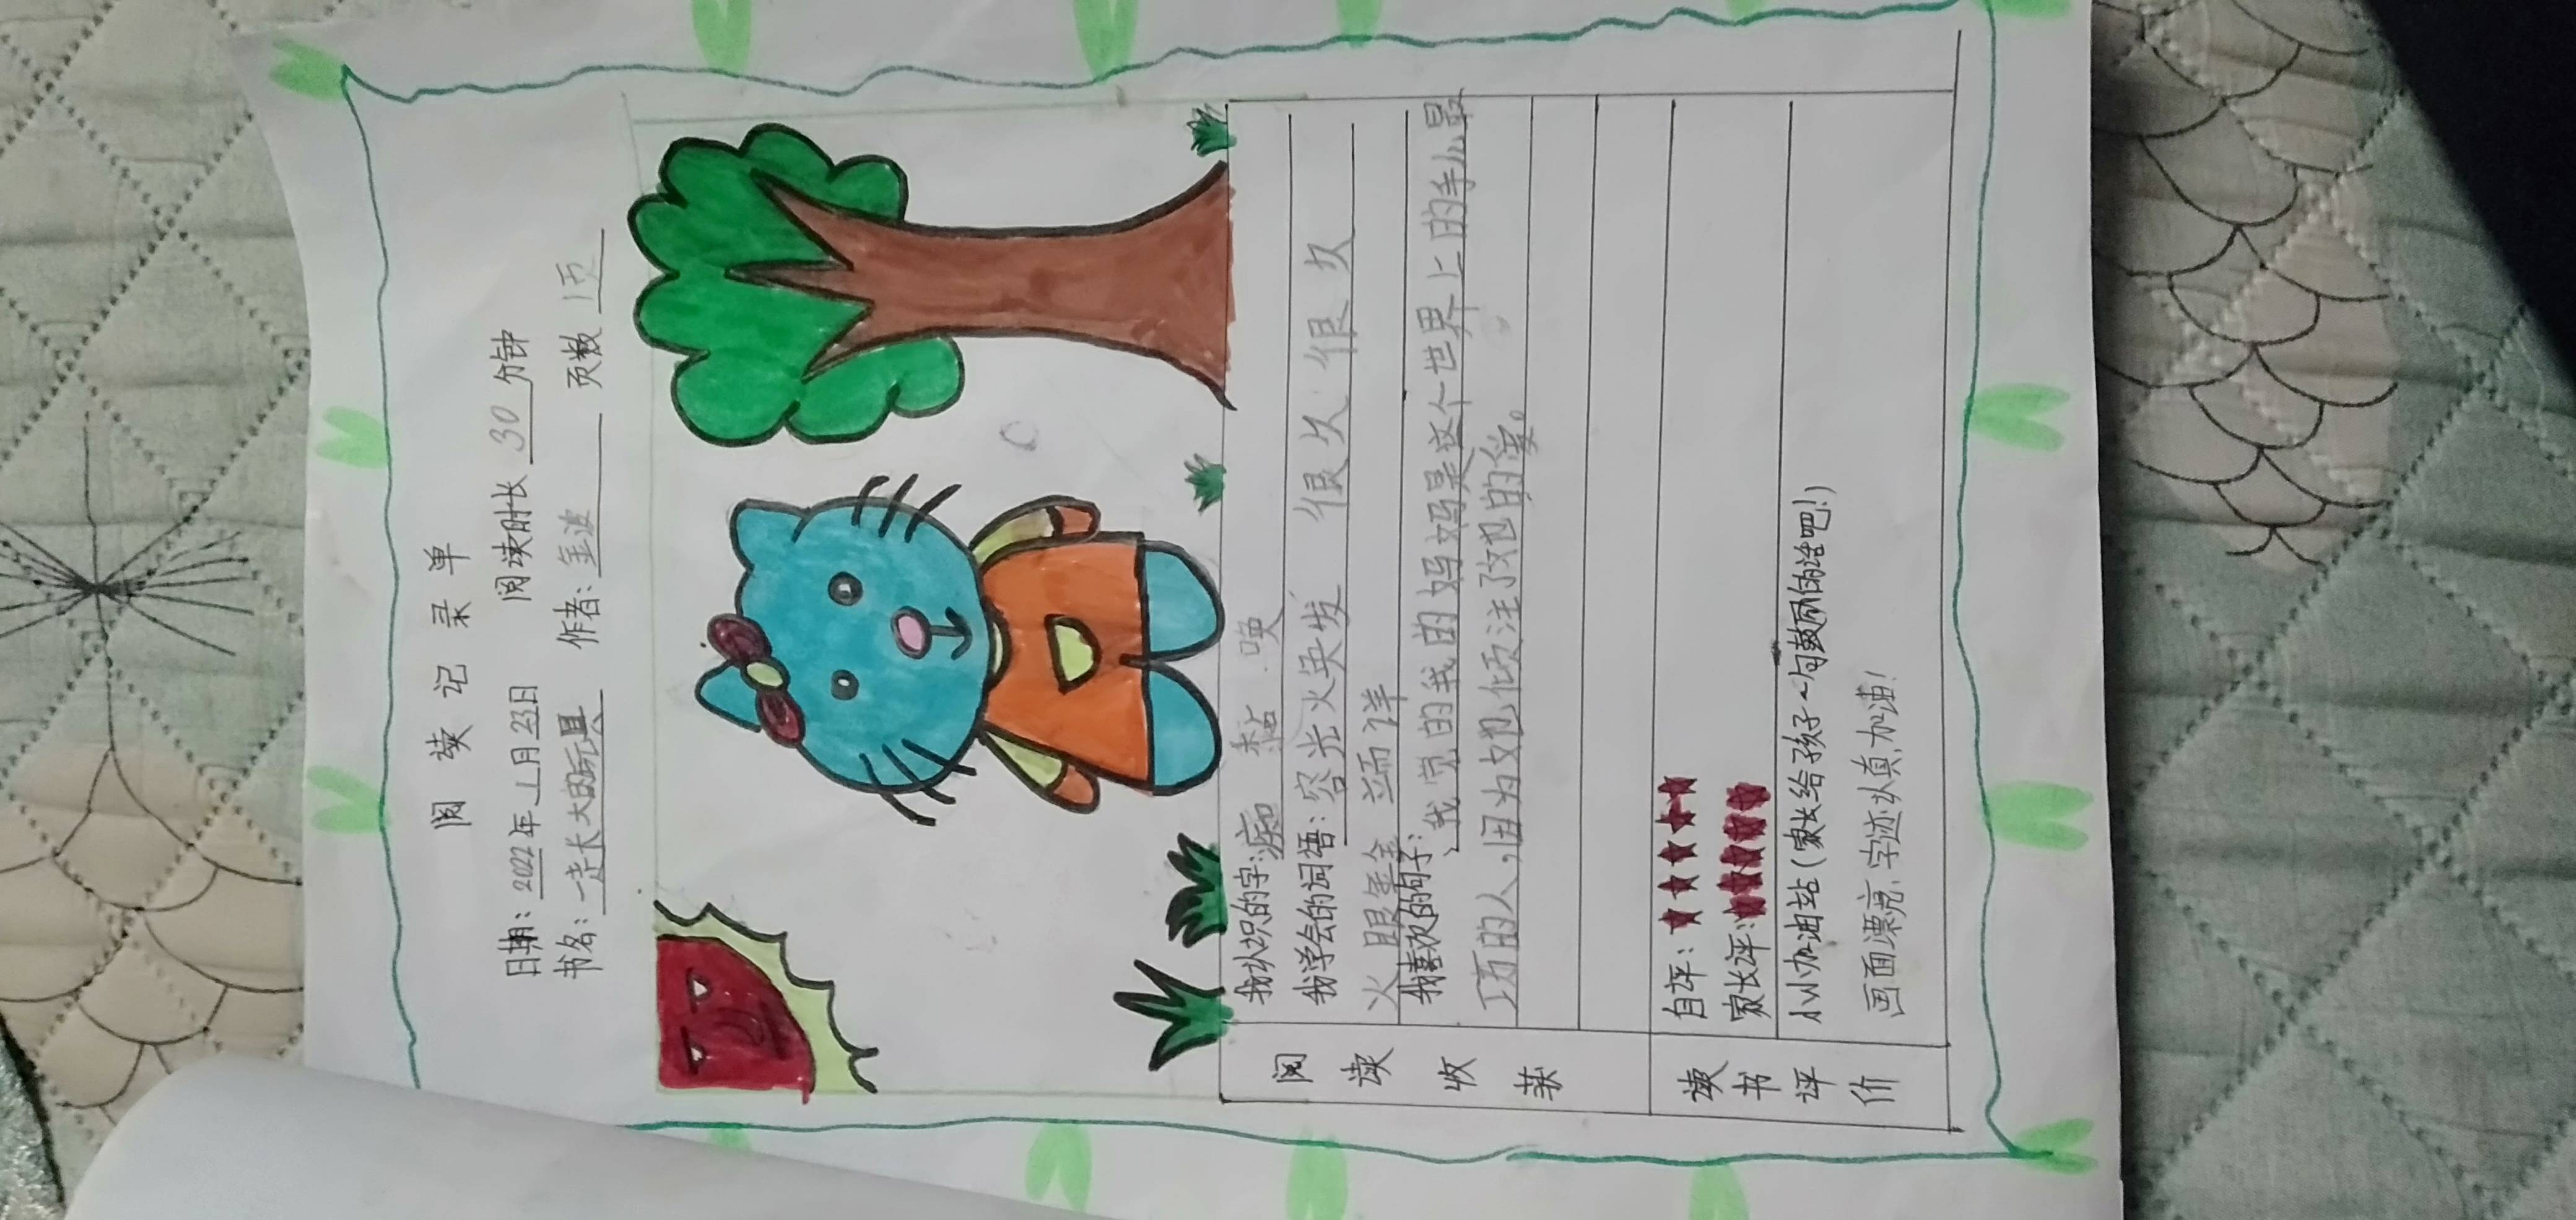 阅读记录单
日期：2022年1月23日 阅读时长 30 分钟
书名：一起长大的玩具 作者：金波 页数 1页
阅读收获
我认识的字：痴 黏 唤
我学会的词语：容光火英发 很久很久
火眼金金 端详
我喜欢的句子：
我觉的我的妈妈是这个世界上的手最
巧的人，因为她倾注了她的爱。
读书评价
自评：★★★★★
家长评：★★★★★
小小加油站（家长给孩子一句鼓励的话吧！）
画面漂亮，字迹认真，加油！